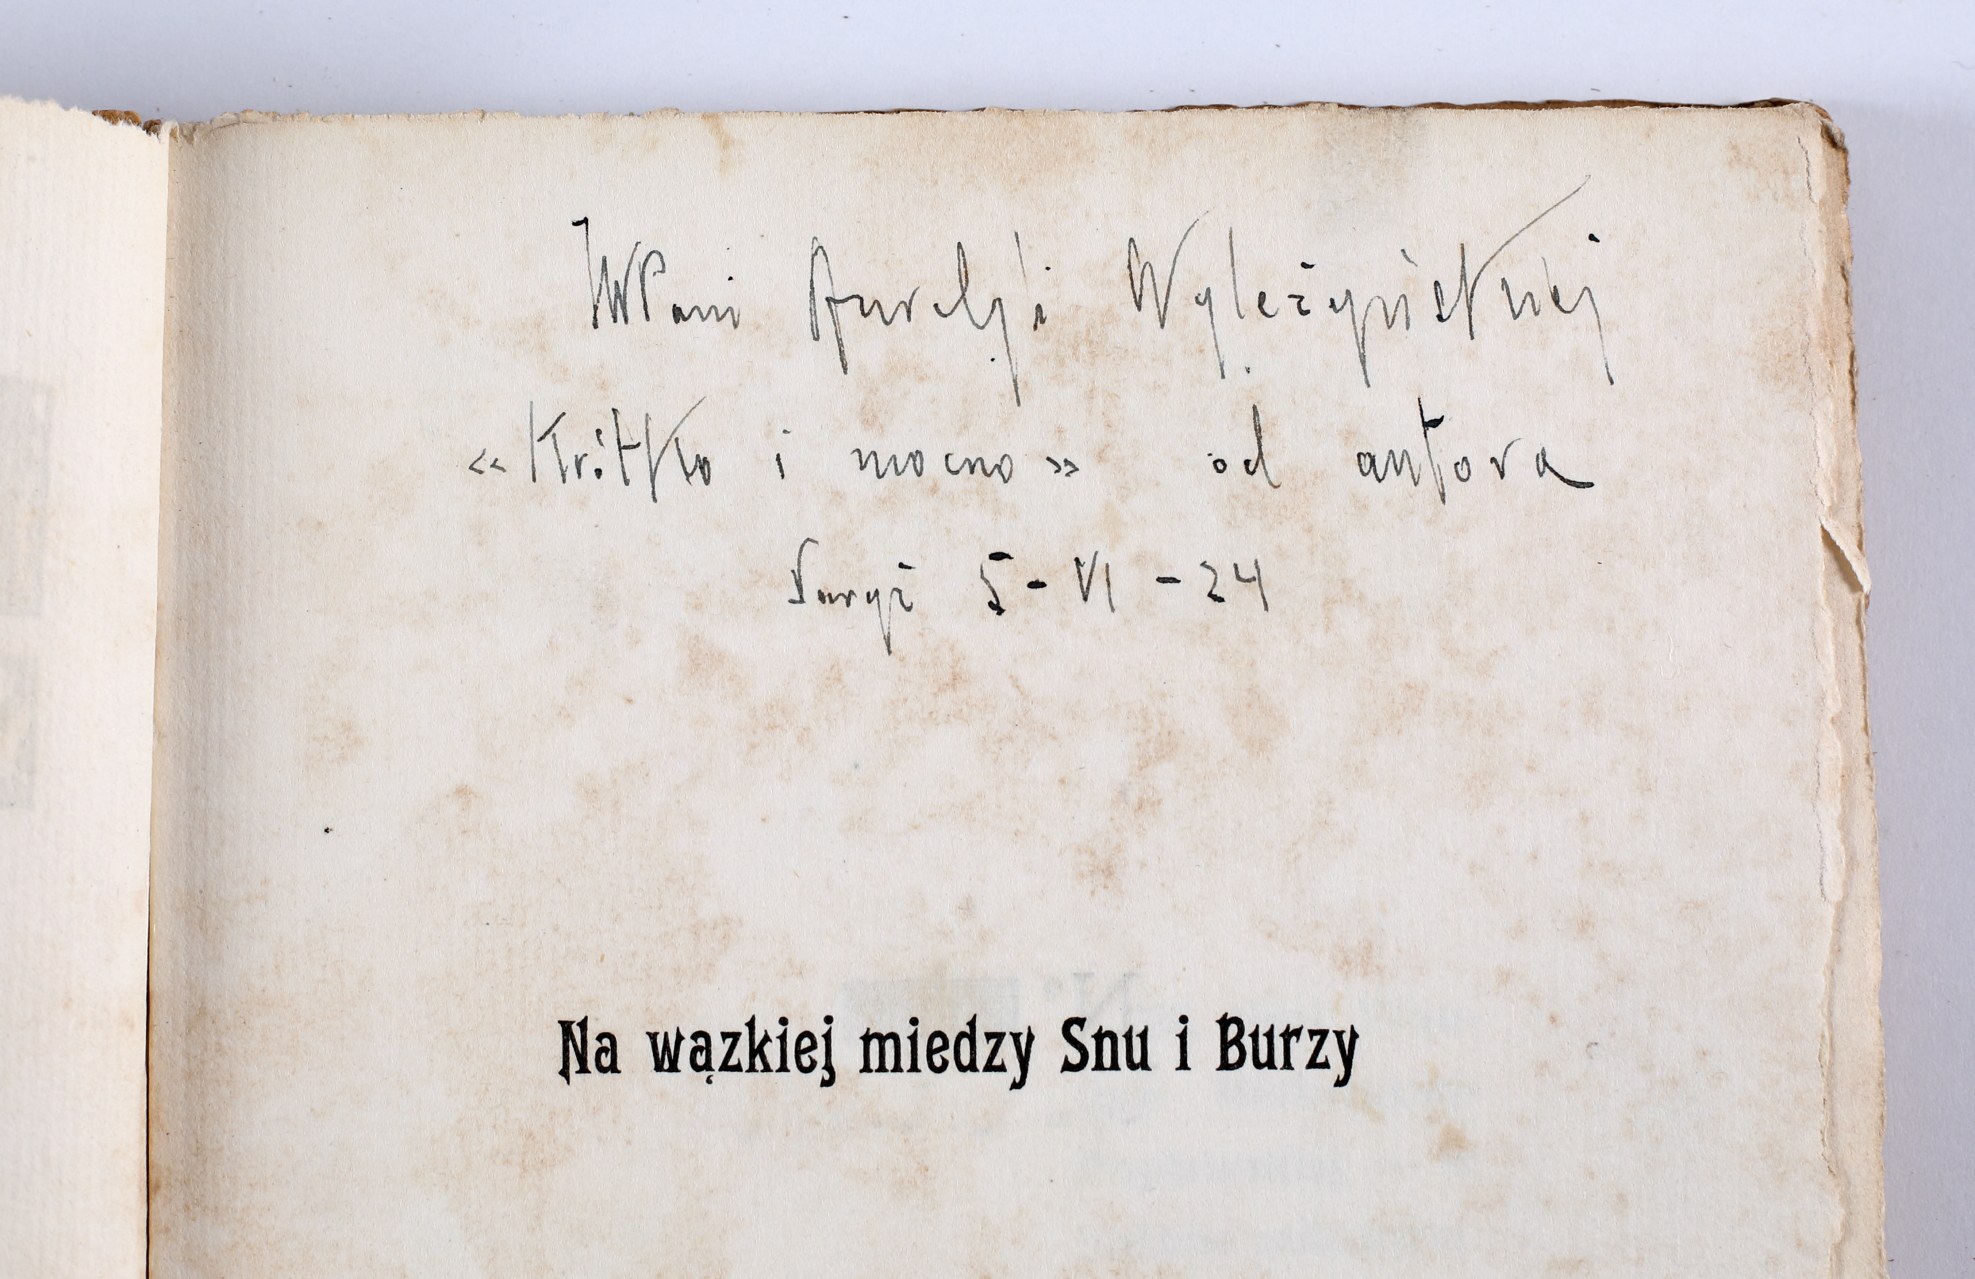 WPani Aurelji Wyleżyńskiej
«Krótko i mocno» od autora
Paryż 5-VI-24
Na wązkiej miedzy Snu i Burzy